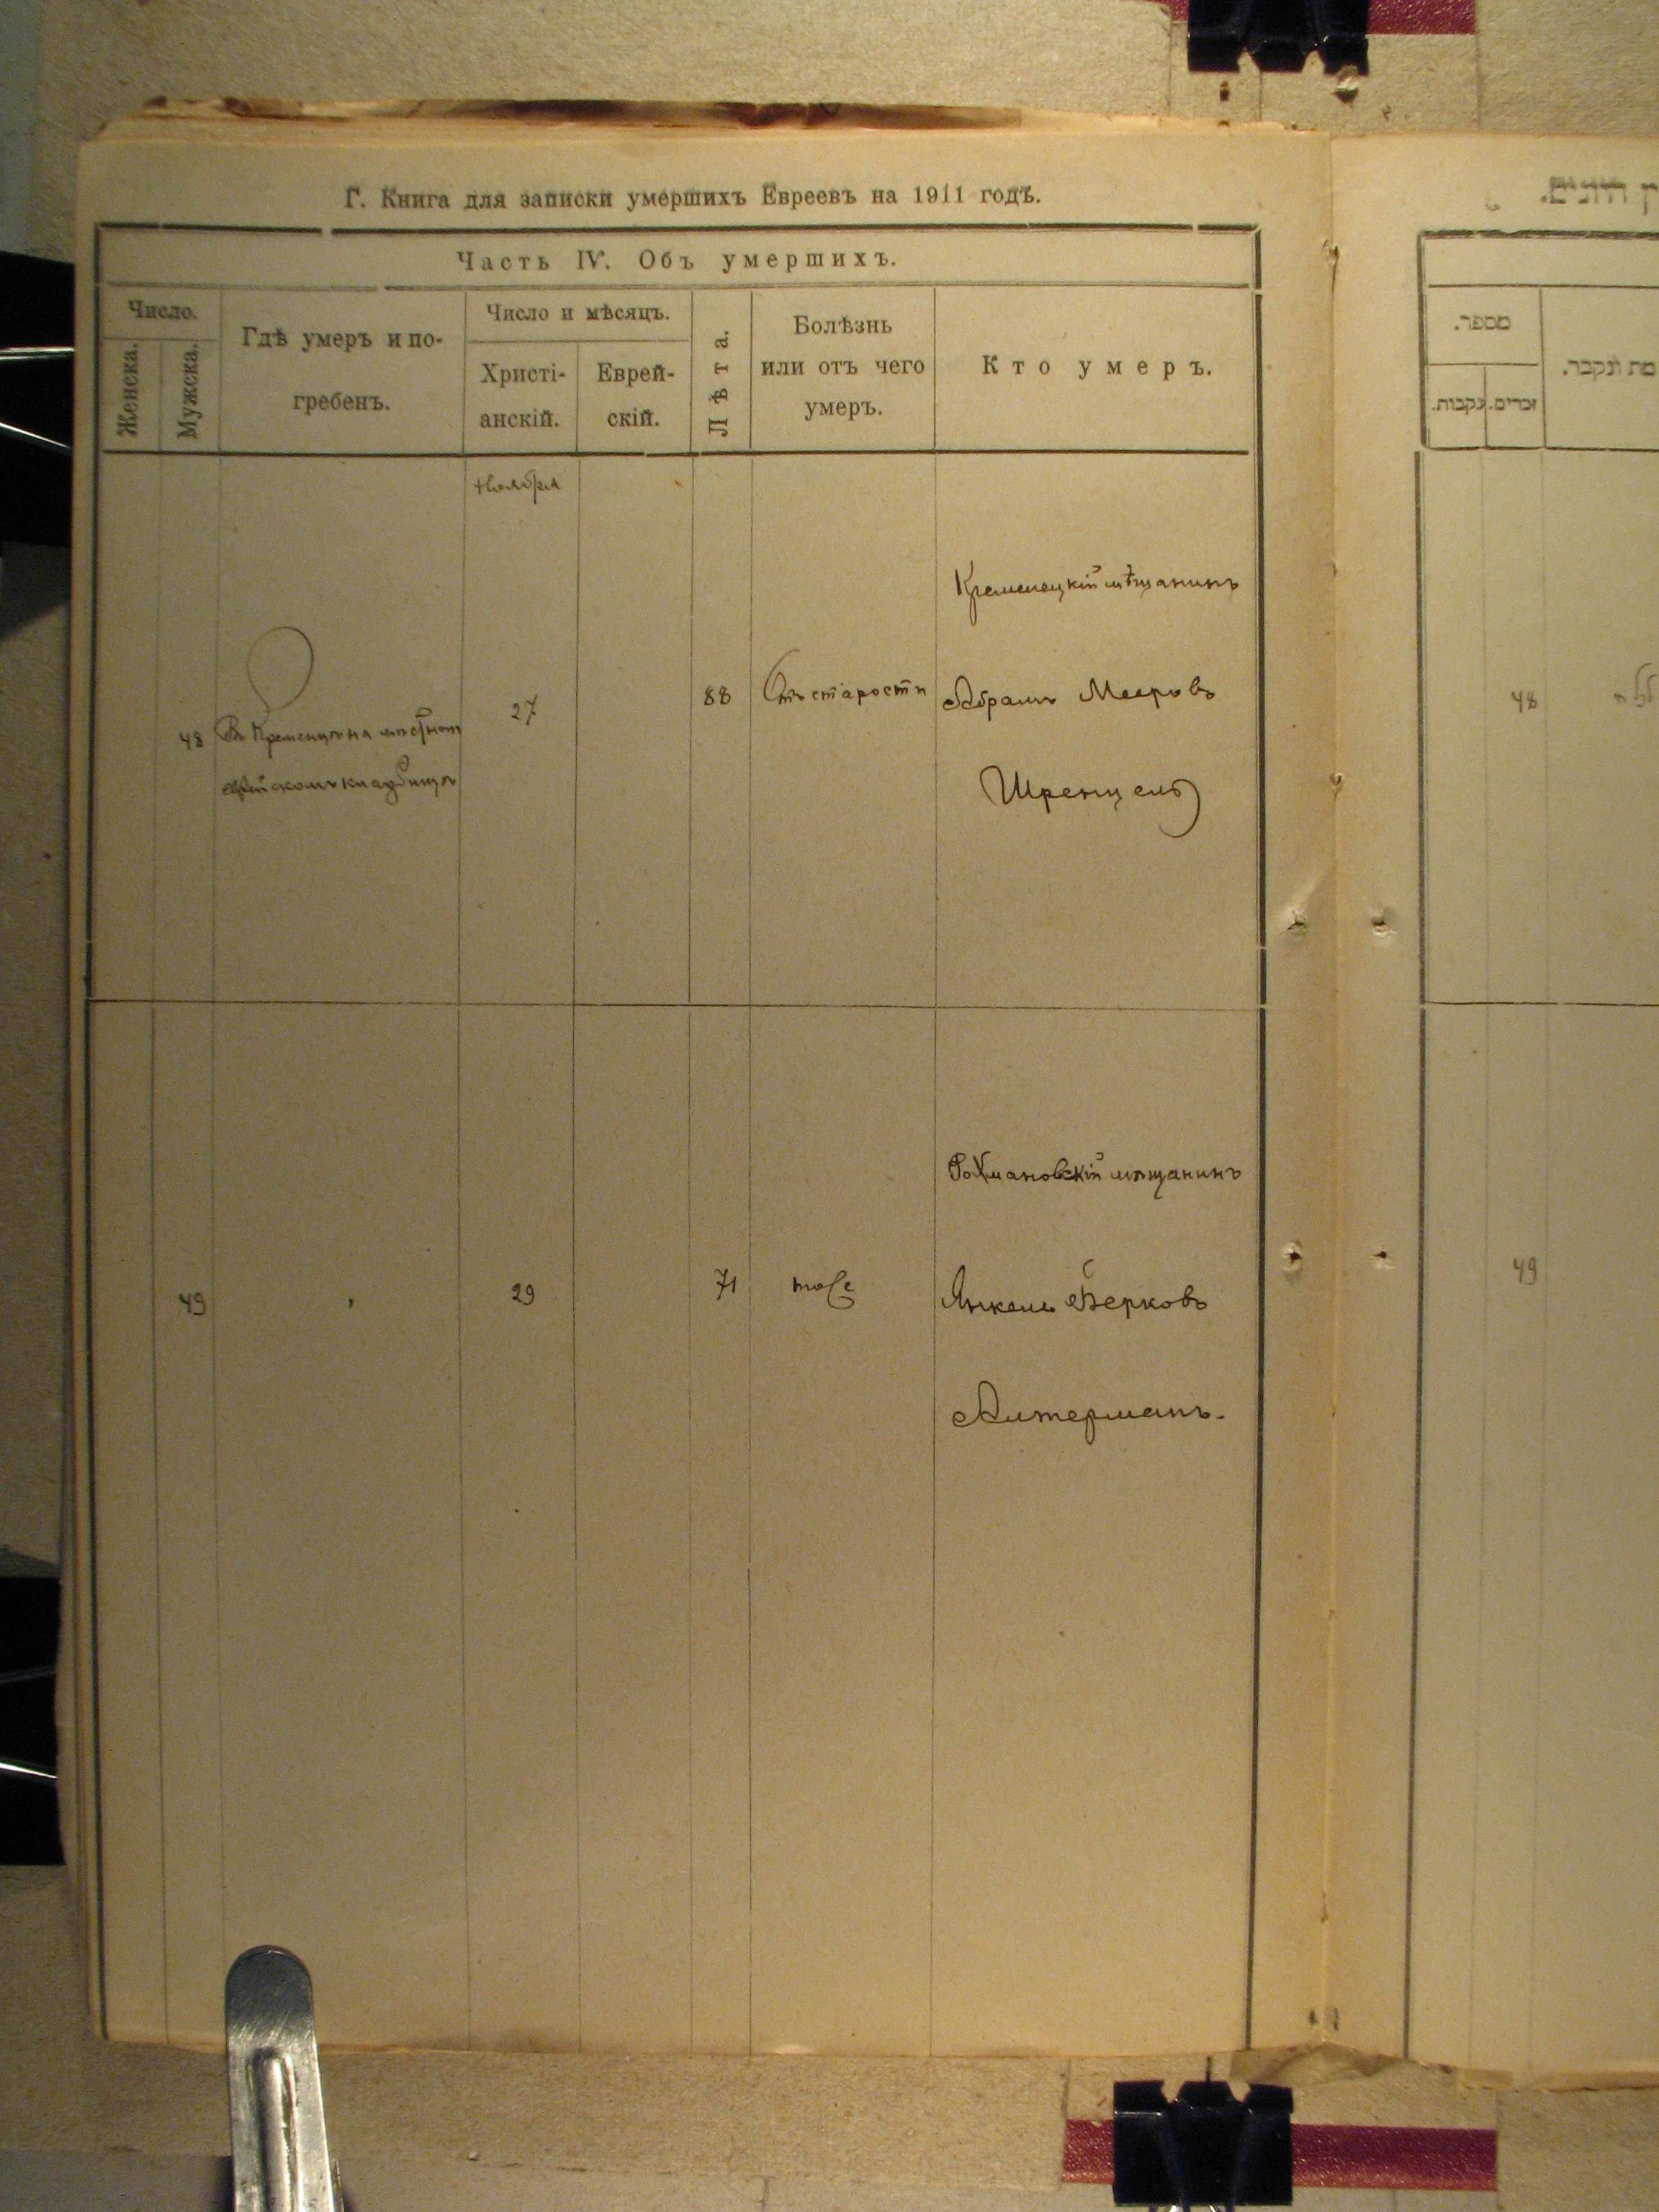 Г. Книга для записки умершихъ Евреевъ на 1911 годъ.
Часть IV. Объ умершихъ.
Число.
Женска.
Мужска.
Гдѣ умеръ и по-
гребенъ.
Число и мѣсяцъ.
Христі-
анскій.
Еврей-
скій.
Лѣта.
Болѣзнь
или отъ чего
умеръ.
Кто умеръ.
Ноября
48
Въ Кременцѣ на мѣстном
еврейскомъ кладбищѣ
27
88
Отъ старости
Кременецкій мѣщанинъ
Абрамъ Мееровъ
Шренцель
49
29
71
тоже
Рохмановскій мѣщанинъ
Янкель Берковъ
Альтерманъ.
מספר.
זכרים.
נקבות.
מת ונקבר.
48
49